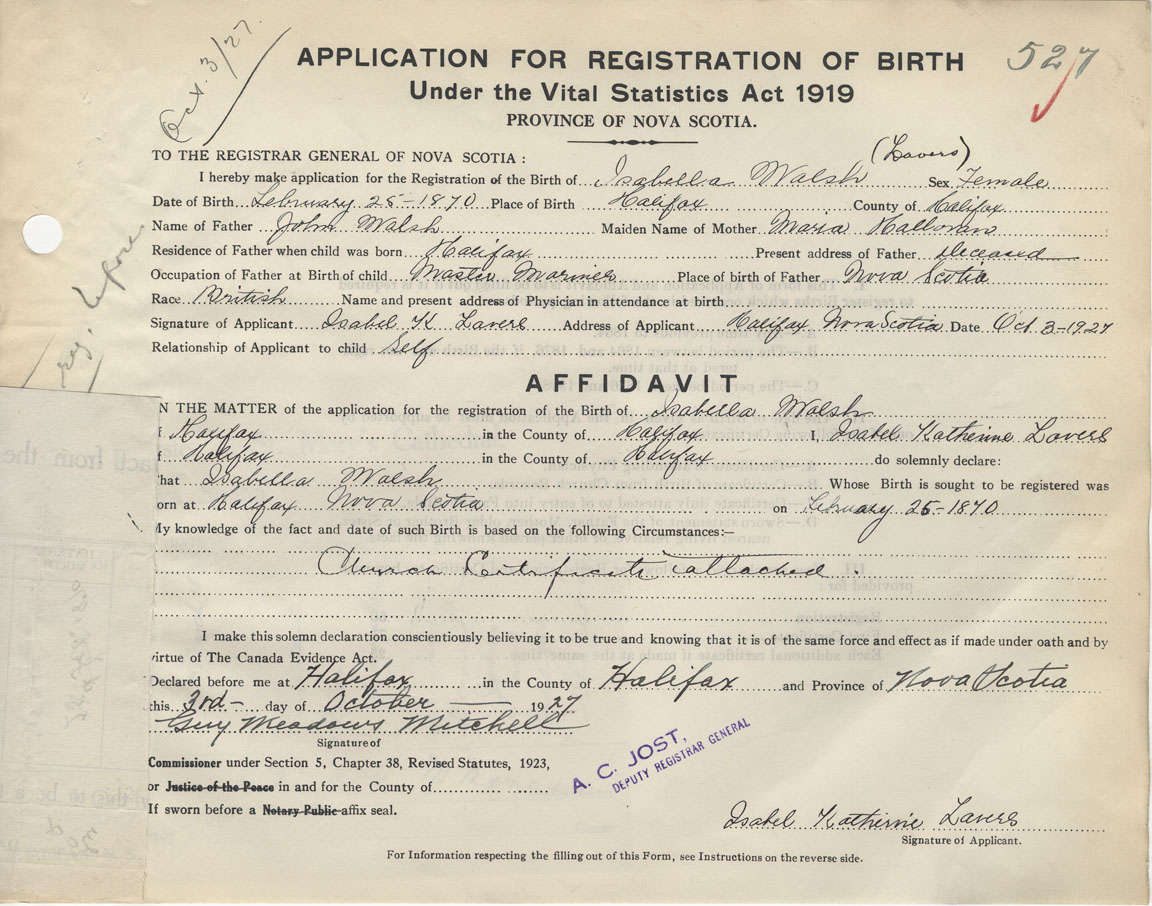 Oct. 3/27.
APPLICATION FOR REGISTRATION OF BIRTH
527
Under the Vital Statistics Act 1919
PROVINCE OF NOVA SCOTIA.
TO THE REGISTRAR GENERAL OF NOVA SCOTIA :
(Lavers)
I hereby make application for the Registration of the Birth of Isabella Walsh Sex Female
Date of Birth February 25-1870 Place of Birth Halifax County of Halifax
Name of Father John Walsh Maiden Name of Mother Maria Halloran
Residence of Father when child was born Halifax Present address of Father deceased
Occupation of Father at Birth of child Master Mariner Place of birth of Father Nova Scotia
Race British Name and present address of Physician in attendance at birth
Signature of Applicant Isabel K Lavers Address of Applicant Halifax Nova Scotia Date Oct 3-1927
Relationship of Applicant to child Self
AFFIDAVIT
N THE MATTER of the application for the registration of the Birth of Isabella Walsh
f Halifax in the County of Halifax I, Isabel Katherine Lavers
f Halifax in the County of Halifax do solemnly declare:
hat Isabella Walsh Whose Birth is sought to be registered was
orn at Halifax Nova Scotia on February 25-1870
My knowledge of the fact and date of such Birth is based on the following Circumstances:—
Church Certificate attached
I make this solemn declaration conscientiously believing it to be true and knowing that it is of the same force and effect as if made under oath and by
virtue of The Canada Evidence Act.
Declared before me at Halifax in the County of Halifax and Province of Nova Scotia
this 3rd- day of October 1927
Guy Meadows Mitchell
Signature of
Commissioner under Section 5, Chapter 38, Revised Statutes, 1923,
or Justice of the Peace in and for the County of
If sworn before a Notary Public affix seal.
A. C. JOST,
DEPUTY REGISTRAR GENERAL
Isabel Katherine Lavers
Signature of Applicant.
For Information respecting the filling out of this Form, see Instructions on the reverse side.